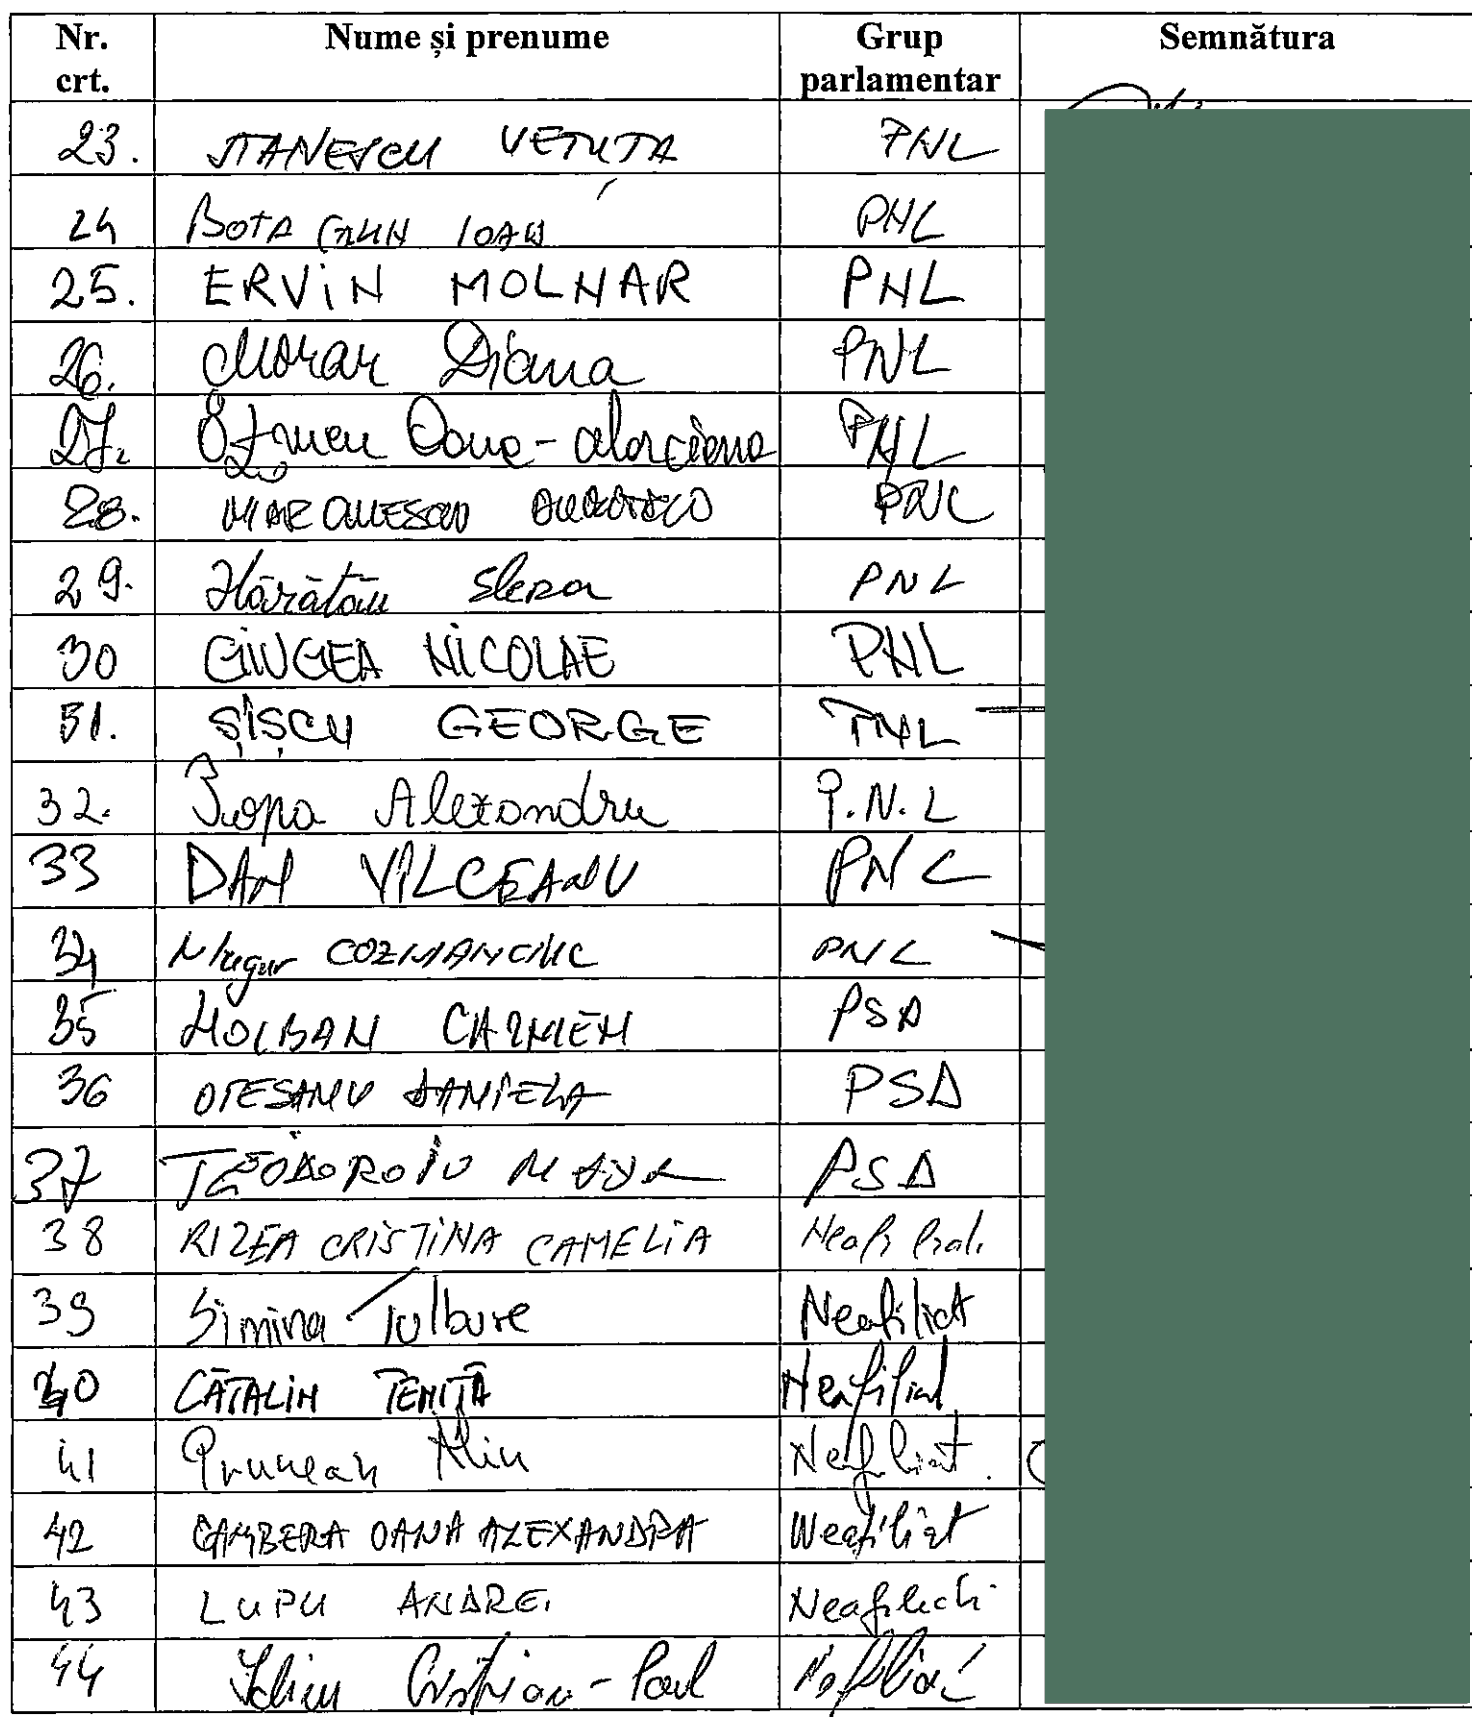 Nr. crt. Nume și prenume Grup parlamentar Semnătura
23. STANESCU VETUTA PNL
24 BOTA CĂLIN IOAN PNL
25. ERVIN MOLNAR PNL
26. Morar Diana PNL
27. Özmen Oana-Marciana PNL
28. PNL
29. Hărătău Elena PNL
30 GIUGEA NICOLAE PNL
31. ȘIȘCU GEORGE PNL
32. Popa Alexandru P.N.L
33 DAN VILCEANU PNL
34 Mugur COZMANCIUC PNL
35 HOLBAN CARMEN PSD
36 OTESANU DANIELA PSD
37 TEODOROIU PSD
38 RIZEA CRISTINA CAMELIA
39 Simina Tulbure Neafiliat
40 CĂTALIN TENIȚĂ Neafiliat
41 Prunean Alin Neafiliat.
42 CAMBERA OANA ALEXANDRA Neafiliat
43 LUPU ANDREI
44 Ichim Cristian-Paul Neafiliat